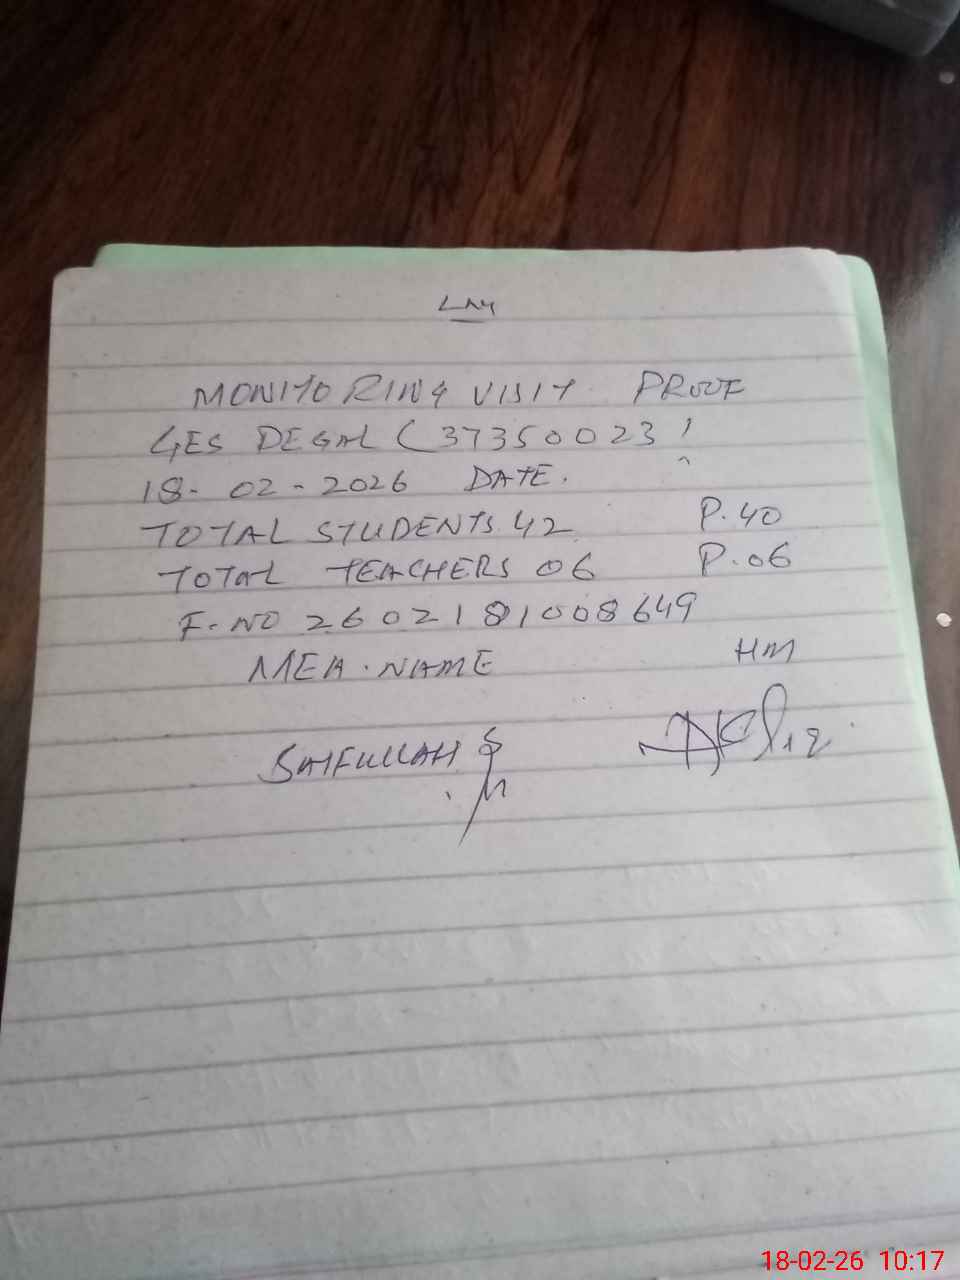 MONITORING VISIT PROOF
GES DEGAL (37350023)
18-02-2026 DATE.
TOTAL STUDENTS 42 P.40
TOTAL TEACHERS 06 P.06
F.NO 2602181008649
MEA. NAME HM
SAIFULLAH
18-02-26 10:17